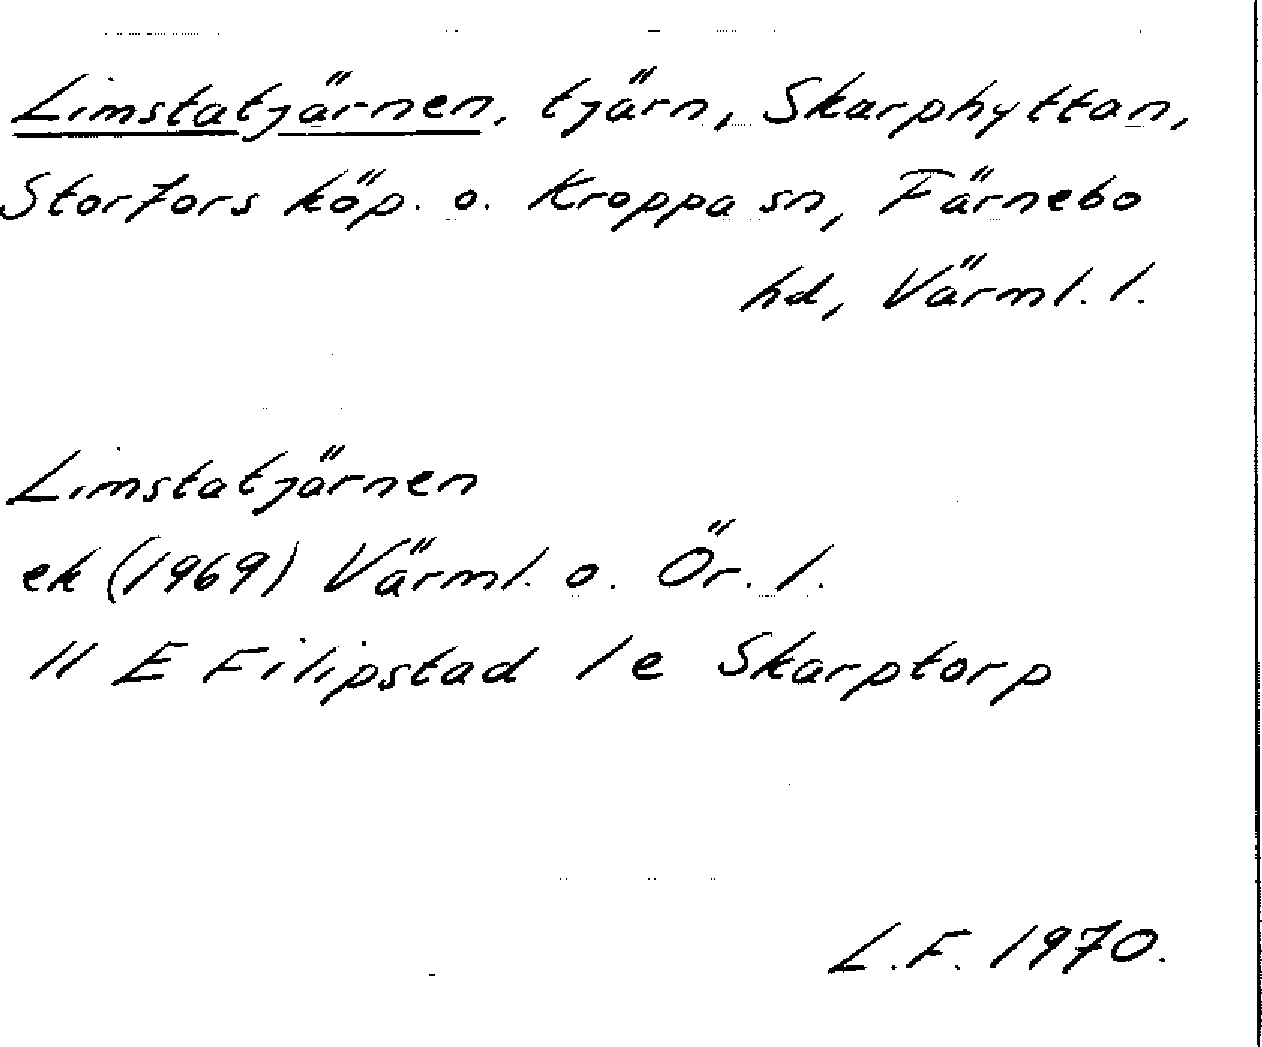 Limstatjärnen, tjärn, Skarphyttan,
Storfors köp. o. Kroppa sn, Färnebo
hd, Värml. l.
Limstatjärnen
ek (1969) Värml. o. Ör. l.
11 E Filipstad 1e Skarptorp
L.F. 1970.